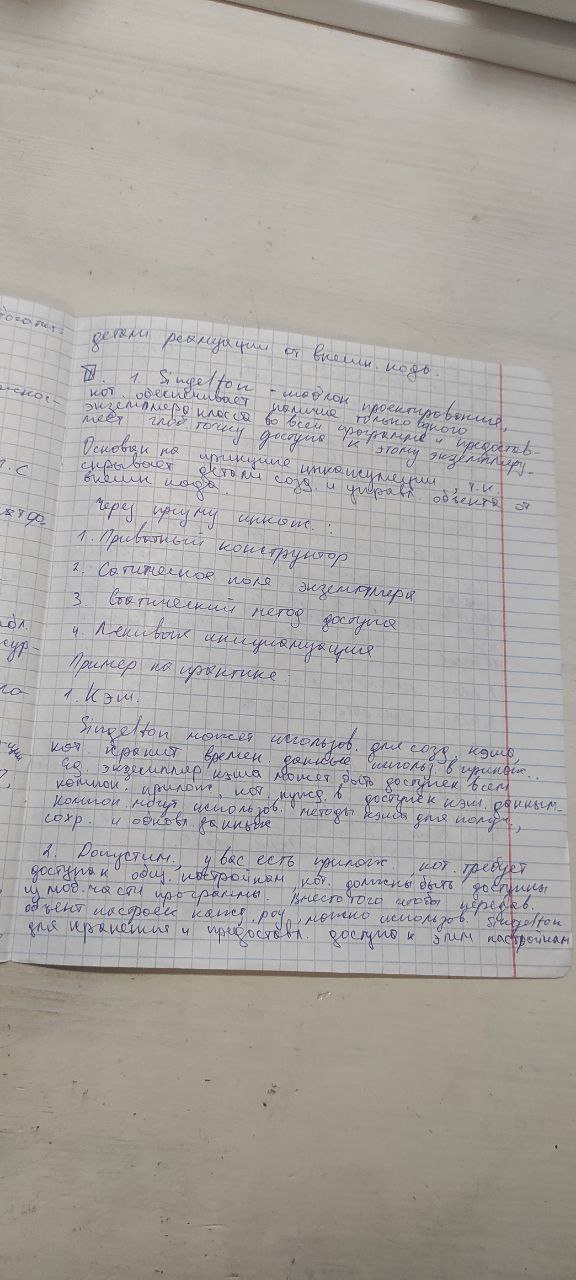 детали реализации от внешн. кода.
IV. 1. Singelton - шаблон проектирования,
кот. обеспечивает наличие только одного
экземпляра класса во всей программе и предостав-
ляет глоб точку доступа к этому экземпляру.
Основан на принципе инкапсуляции, т.к
скрывает детали созд. и управл. объекта от
внешн кода.
Через призму инкапс.:
1. Приватный конструктор
2. Сатическое поле экземпляра
3. Статический метод доступа
4. Ленивая инициализация
Пример на практике:
1. Кэш.
Singelton может использов. для созд. кэша,
кот. хранит времен. данные использ. в прилож..
Ед. экземпляр кэша может быть доступен всем
компон. прилож., кот. нужд. в доступе к кэш. данным.
Компон. могут использов. методы кэша для получ.,
сохр. и обновл. данных
2. Допустим, у вас есть прилож., кот. требует
доступа к общ. настройкам, кот. должны быть доступны
из люб. части программы. Вместо того чтобы передав.
объект настроек кажд. раз, можно использов. Singelton
для хранения и предоставл. доступа к этим настройкам
богатит-
т. с
кур-